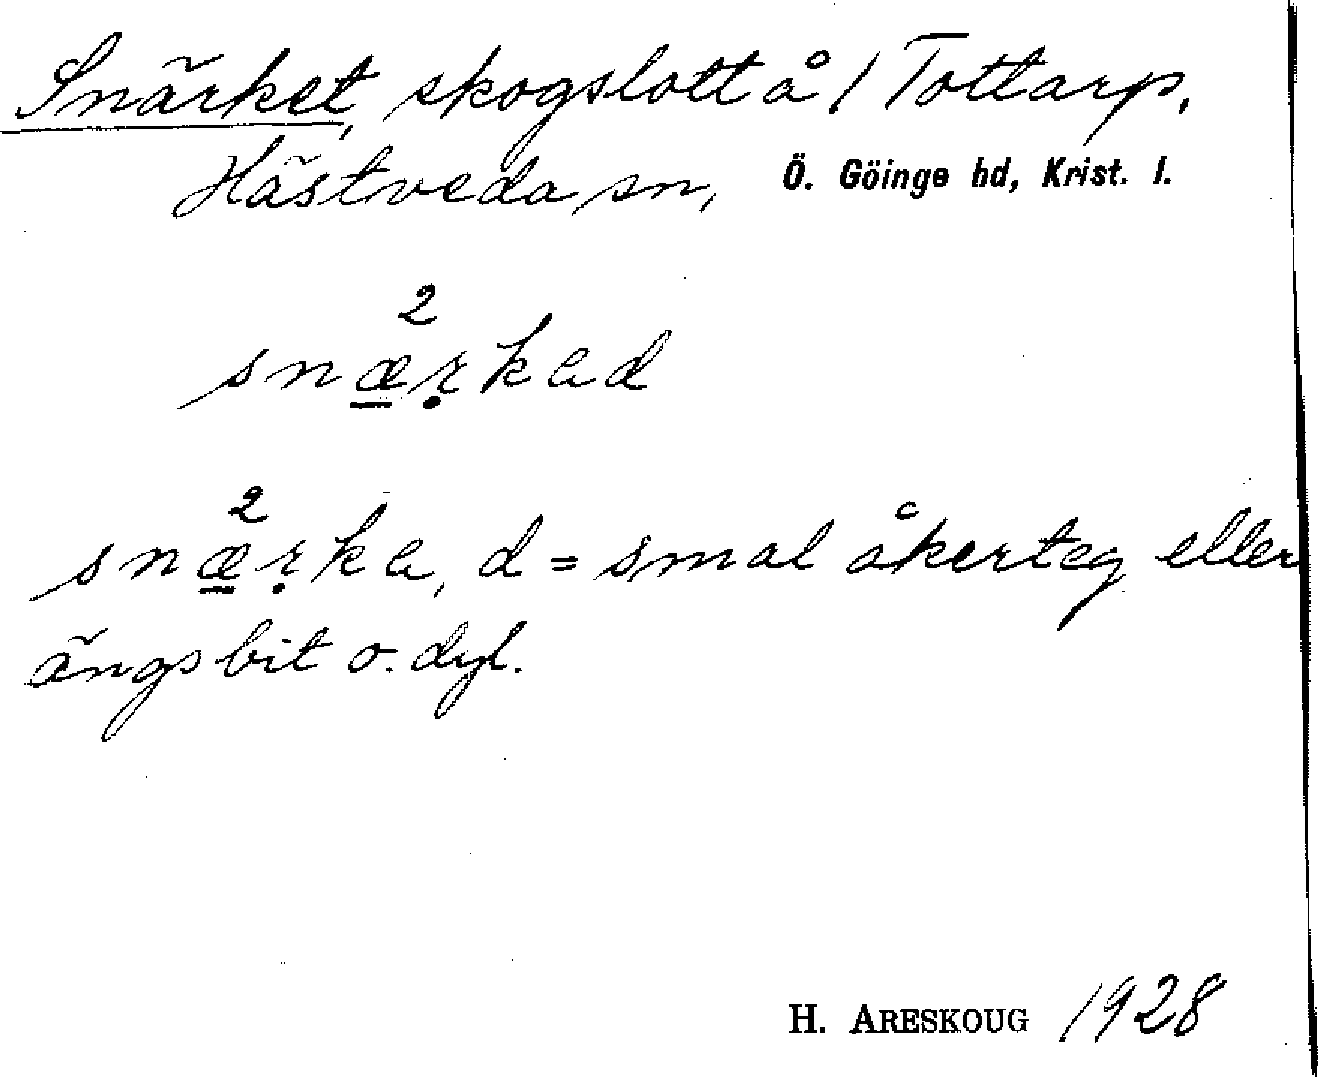 Snärket, skogslott å 1 Tottarp,
Hästveda sn, Ö. Göinge hd, Krist. l.
2
snæ̲ṛkad
2
snæ̲ṛka, d = smal åkerteg eller
ängsbit o. dyl.
H. ARESKOUG 1928